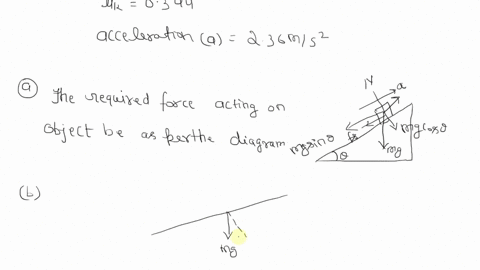 μk = 0.344
acceleration (a) = 2.36 m/s²
(a) The required force acting on
object be as per the diagram
N
a
fs
mg sin θ
mg cos θ
mg
θ
(b)
mg